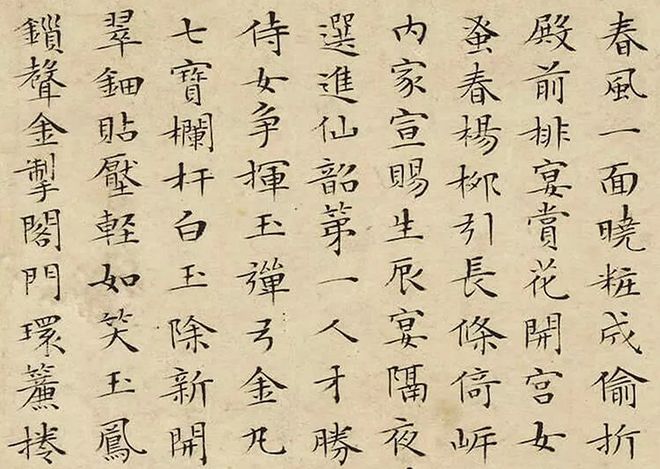 春風一面曉粧成偷折
殿前排宴賞花開宮女
蚤春楊柳引長條倚岍
内家宣賜生辰宴隔夜
選進仙韶第一人才勝
侍女争揮玉彈弓金丸
七寶欄杆白玉除新開
翠鈿貼靨輕如笑玉鳳
鎖聲金掣閣門環簾捲